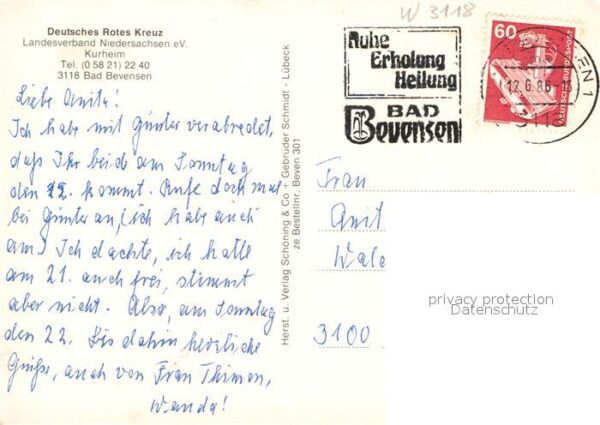 W 3118
Deutsches Rotes Kreuz
Landesverband Niedersachsen eV.
Kurheim
Tel. (0 58 21) 22 40
3118 Bad Bevensen
Ruhe
Erholung
Heilung
BAD
Bevensen
60
DEUTSCHE BUNDESPOST
12.6.86
3110
Liebe Anita!
Ich habe mit Günter verabredet,
daß Ihr beid am Sonntag
den 22. kommt. Rufe doch mal
bei Günter an, ich habe auch
am Ich dachte, ich hatte
am 21. auch frei, stimmt
aber nicht. Also, am Sonntag
den 22. Bis dahin herzliche
Grüße, auch von Frau Thimon,
Wanda!
Herst. u. Verlag Schöning & Co + Gebrüder Schmidt - Lübeck
ze Bestellnr. Beven 301
Frau
Anit
Wale
3100
privacy protection
Datenschutz